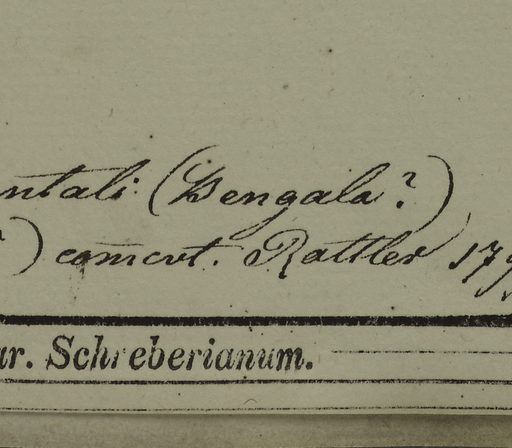 ntali (Bengala?)
?) com̄crt. Rottler 179
ar. Schreberianum.